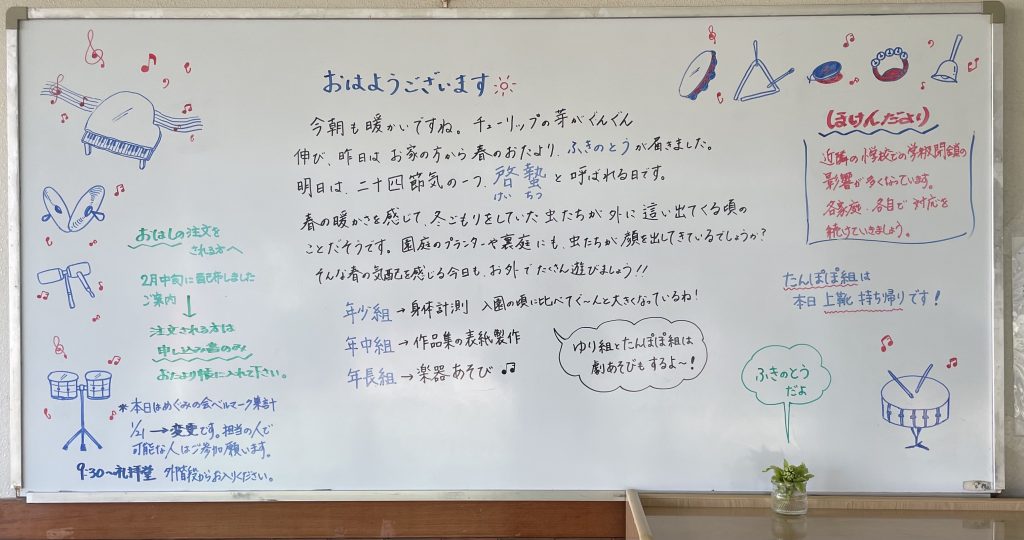 おはようございます
今朝も暖かいですね。チューリップの芽がぐんぐん
伸び、昨日は お家の方から 春のおたより、ふきのとうが届きました。
明日は、二十四節気の一つ、啓蟄と呼ばれる日です。
けい ちつ
春の暖かさを感じて、冬ごもりをしていた虫たちが外に這い出てくる頃の
ことだそうです。園庭のプランターや裏庭にも、虫たちが顔を出してきているでしょうか?
そんな春の気配を感じる今日も、お外でたくさん遊びましょう!!
年少組→身体計測 入園の頃に比べてぐ〜んと大きくなっているわ!
年中組→作品集の表紙製作
年長組→楽器あそび
ゆり組とたんぽぽ組は
劇あそびもするよ〜!
ふきのとう
だよ
ほけんだより
近隣の小学校での学級閉鎖の
影響が多くなっています。
各家庭、各自で対応を
続けていきましょう。
たんぽぽ組は
本日 上靴 持ち帰りです!
おはしの注文を
される方へ
2月中旬に配布しました
ご案内
↓
注文される方は
申し込み書のみ
おたより帳に入れて下さい。
*本日はめぐみの会ベルマーク集計
1/21→変更です。担当の人で
可能な人はご参加願います。
9:30〜礼拝堂 外階段からお入りください。